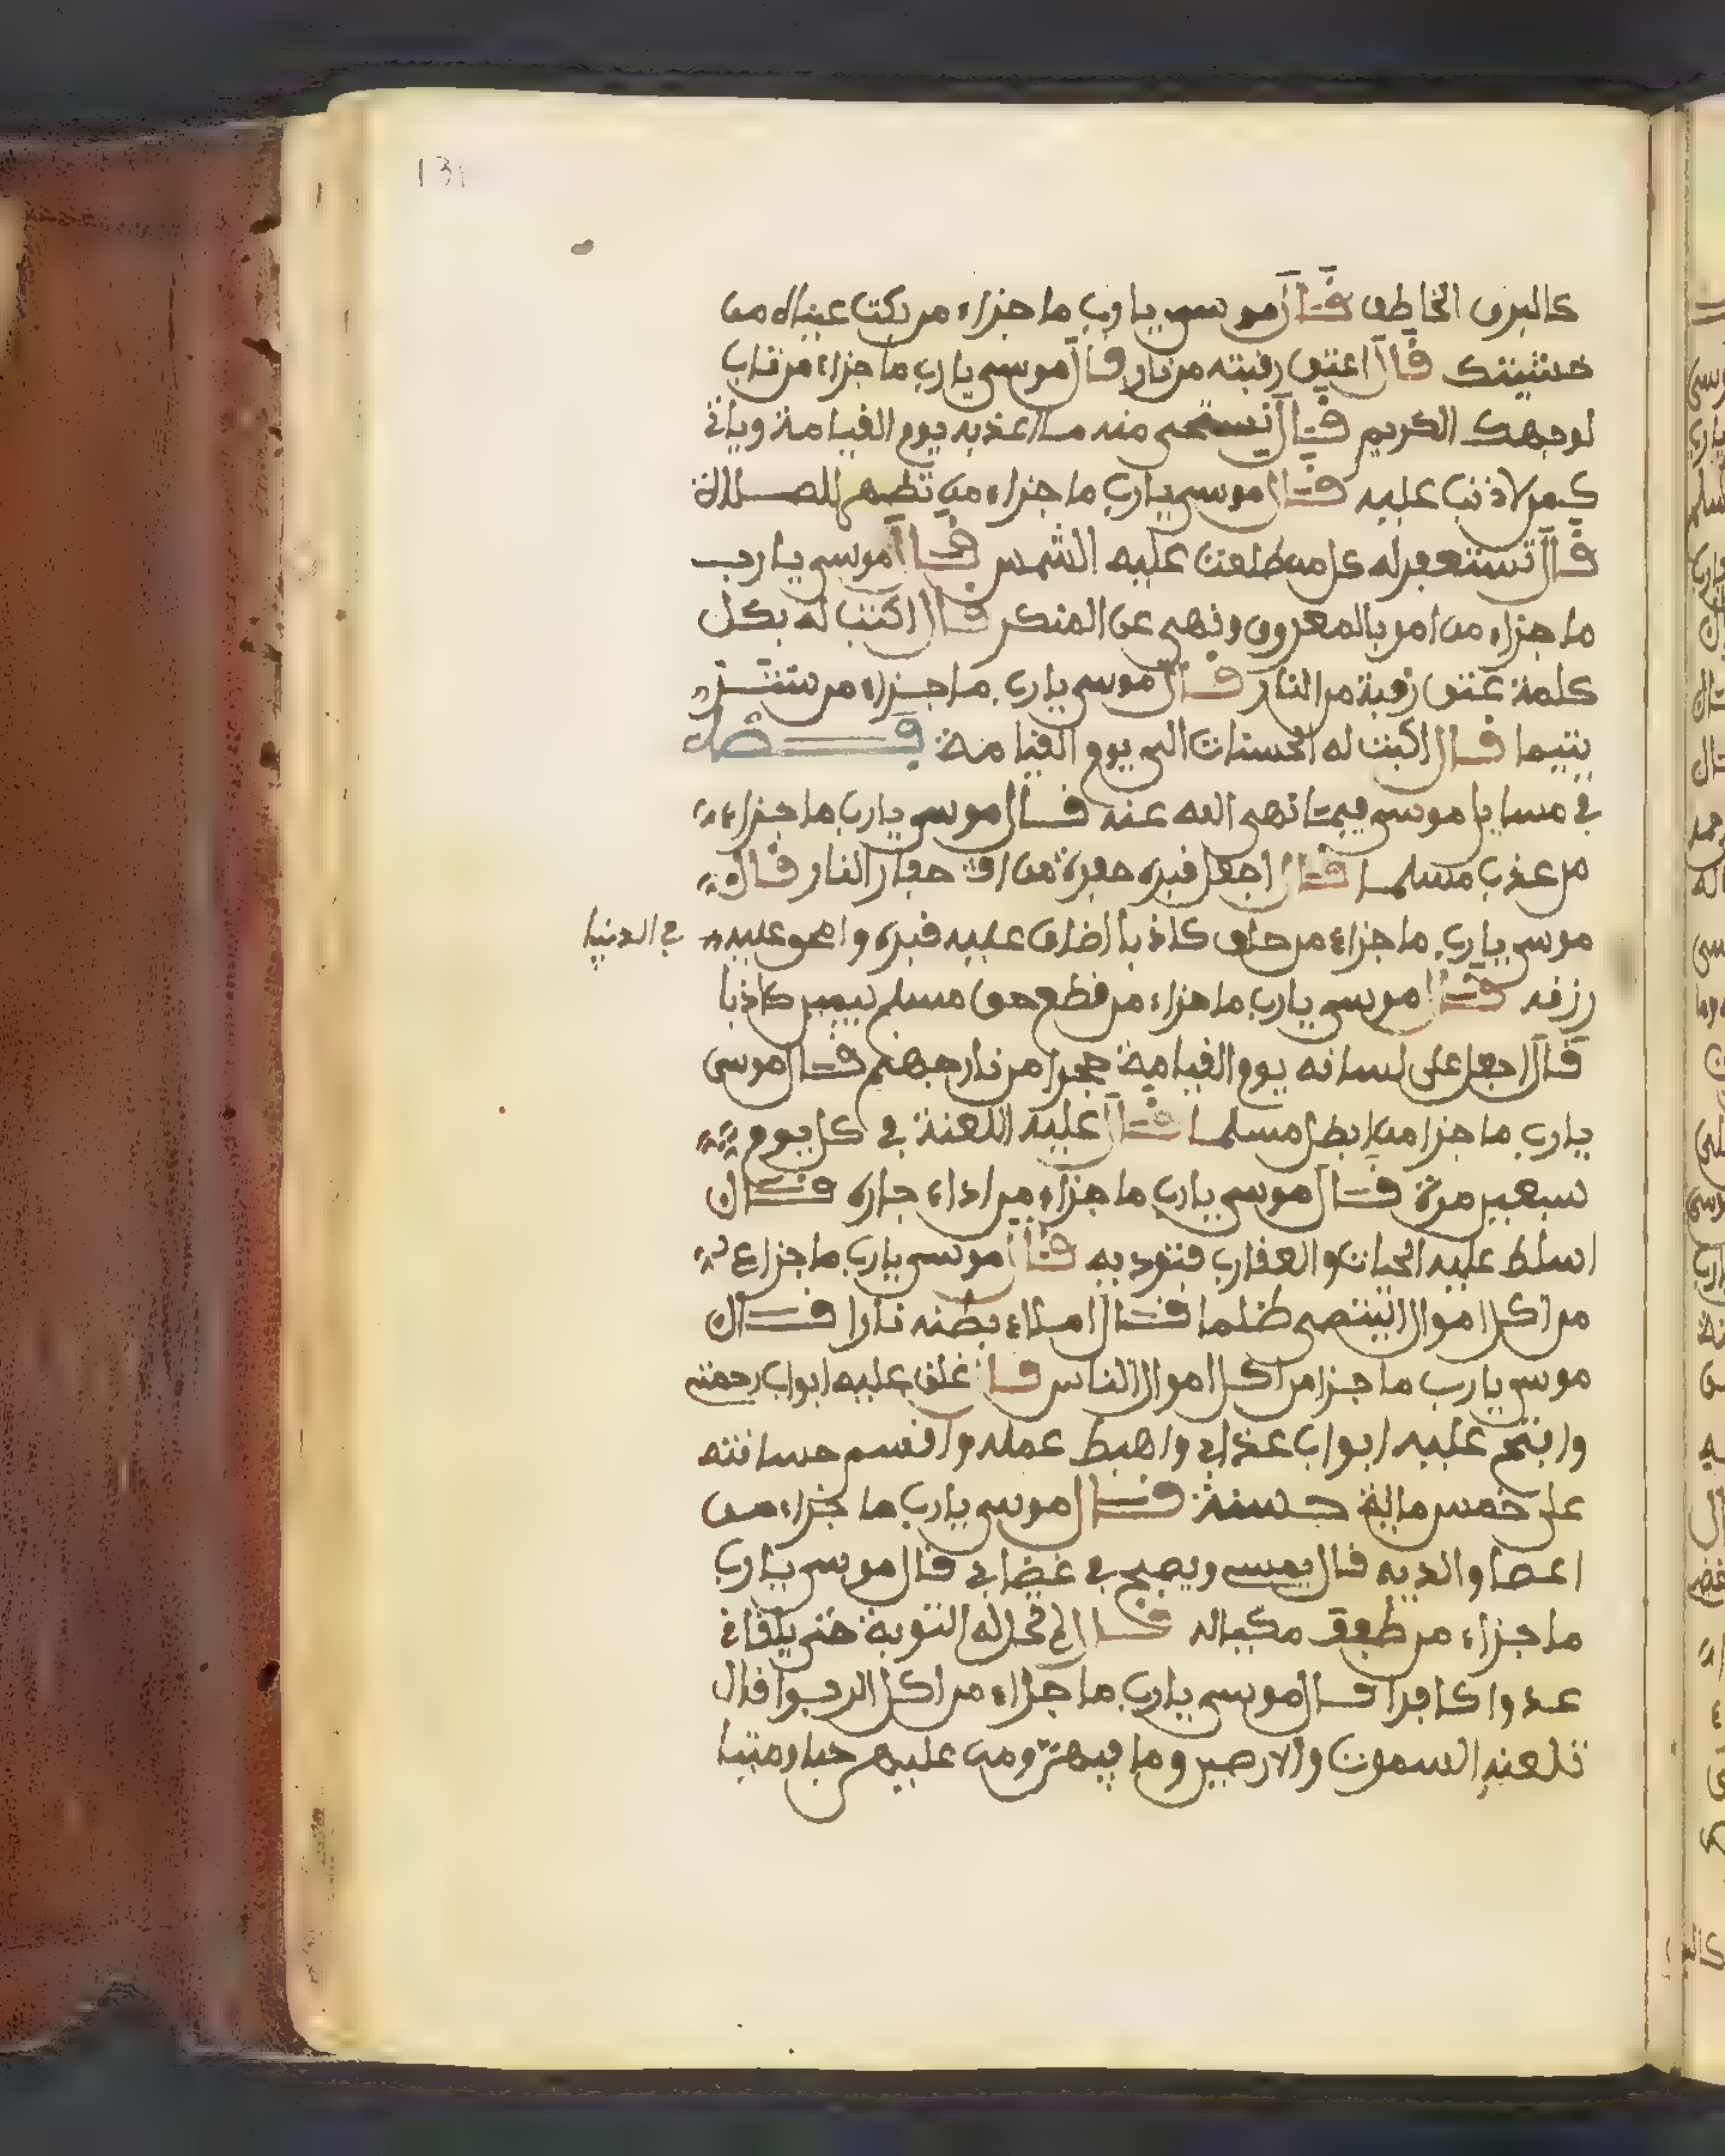 131
كالبرق الخاطف قال موسى يارب ما جزاء من بكت عيناه من
خشيتك قال اعتق رقبته من نار قال موسى يارب ما جزاء من تاب
لوجهك الكريم قال نستحي منه ... اعذبه يوم القيامة وياتي
كمن لا ذنب عليه قال موسى يارب ما جزاء من تطهر للصلاة
قال تستغفر له كل من طلعت عليه الشمس قال موسى يارب
ما جزاء من امر بالمعروف ونهى عن المنكر قال اكتب له بكل
كلمة عتق رقبة من النار قال موسى يارب ما جزاء من ستر
يتيما قال اكتب له الحسنات الى يوم القيامة فصل
في مسايل موسى فيما نهى الله عنه قال موسى يارب ما جزاء
من عذب مسلما قال اجعل قبره حفرة من حفار النار قال
موسى يارب ما جزاء من حلف كاذبا اضاق عليه قبره وامحو عليه في الدنيا
رزقه قال موسى يارب ما جزاء من قطع حق مسلم بيمين كاذبا
قال اجعل على لسانه يوم القيامة حجرا من نار جهنم قال موسى
يارب ما جزا من ابطل مسلما قال عليه اللعنة في كل يوم
سبعين مرة قال موسى يارب ما جزاء من اذاء جاره قال
اسلط عليه الحيات والعقارب فتوذيه قال موسى يارب ما جزاء
من اكل اموال اليتمى ظلما قال املاء بطنه نارا قال
موسى يارب ما جزا من اكل اموال الناس قال غلق عليه ابواب رحمتي
وافتح عليه ابواب عذابي واهبط عمله واقسم حسانته
على خمس ماية حسنة قال موسى يارب ما جزاء من
اعصا والديه قال يمسي ويصبح في غضابي قال موسى يارب
ما جزاء من طفف مكياله قال لم تحل له التوبة حتى يلقاني
عدوا كافرا قال موسى يارب ما جزاء من اكل الربوا قال
تلعنه السموت والارضين وما فيهن ومن عليهم حيا وميتا